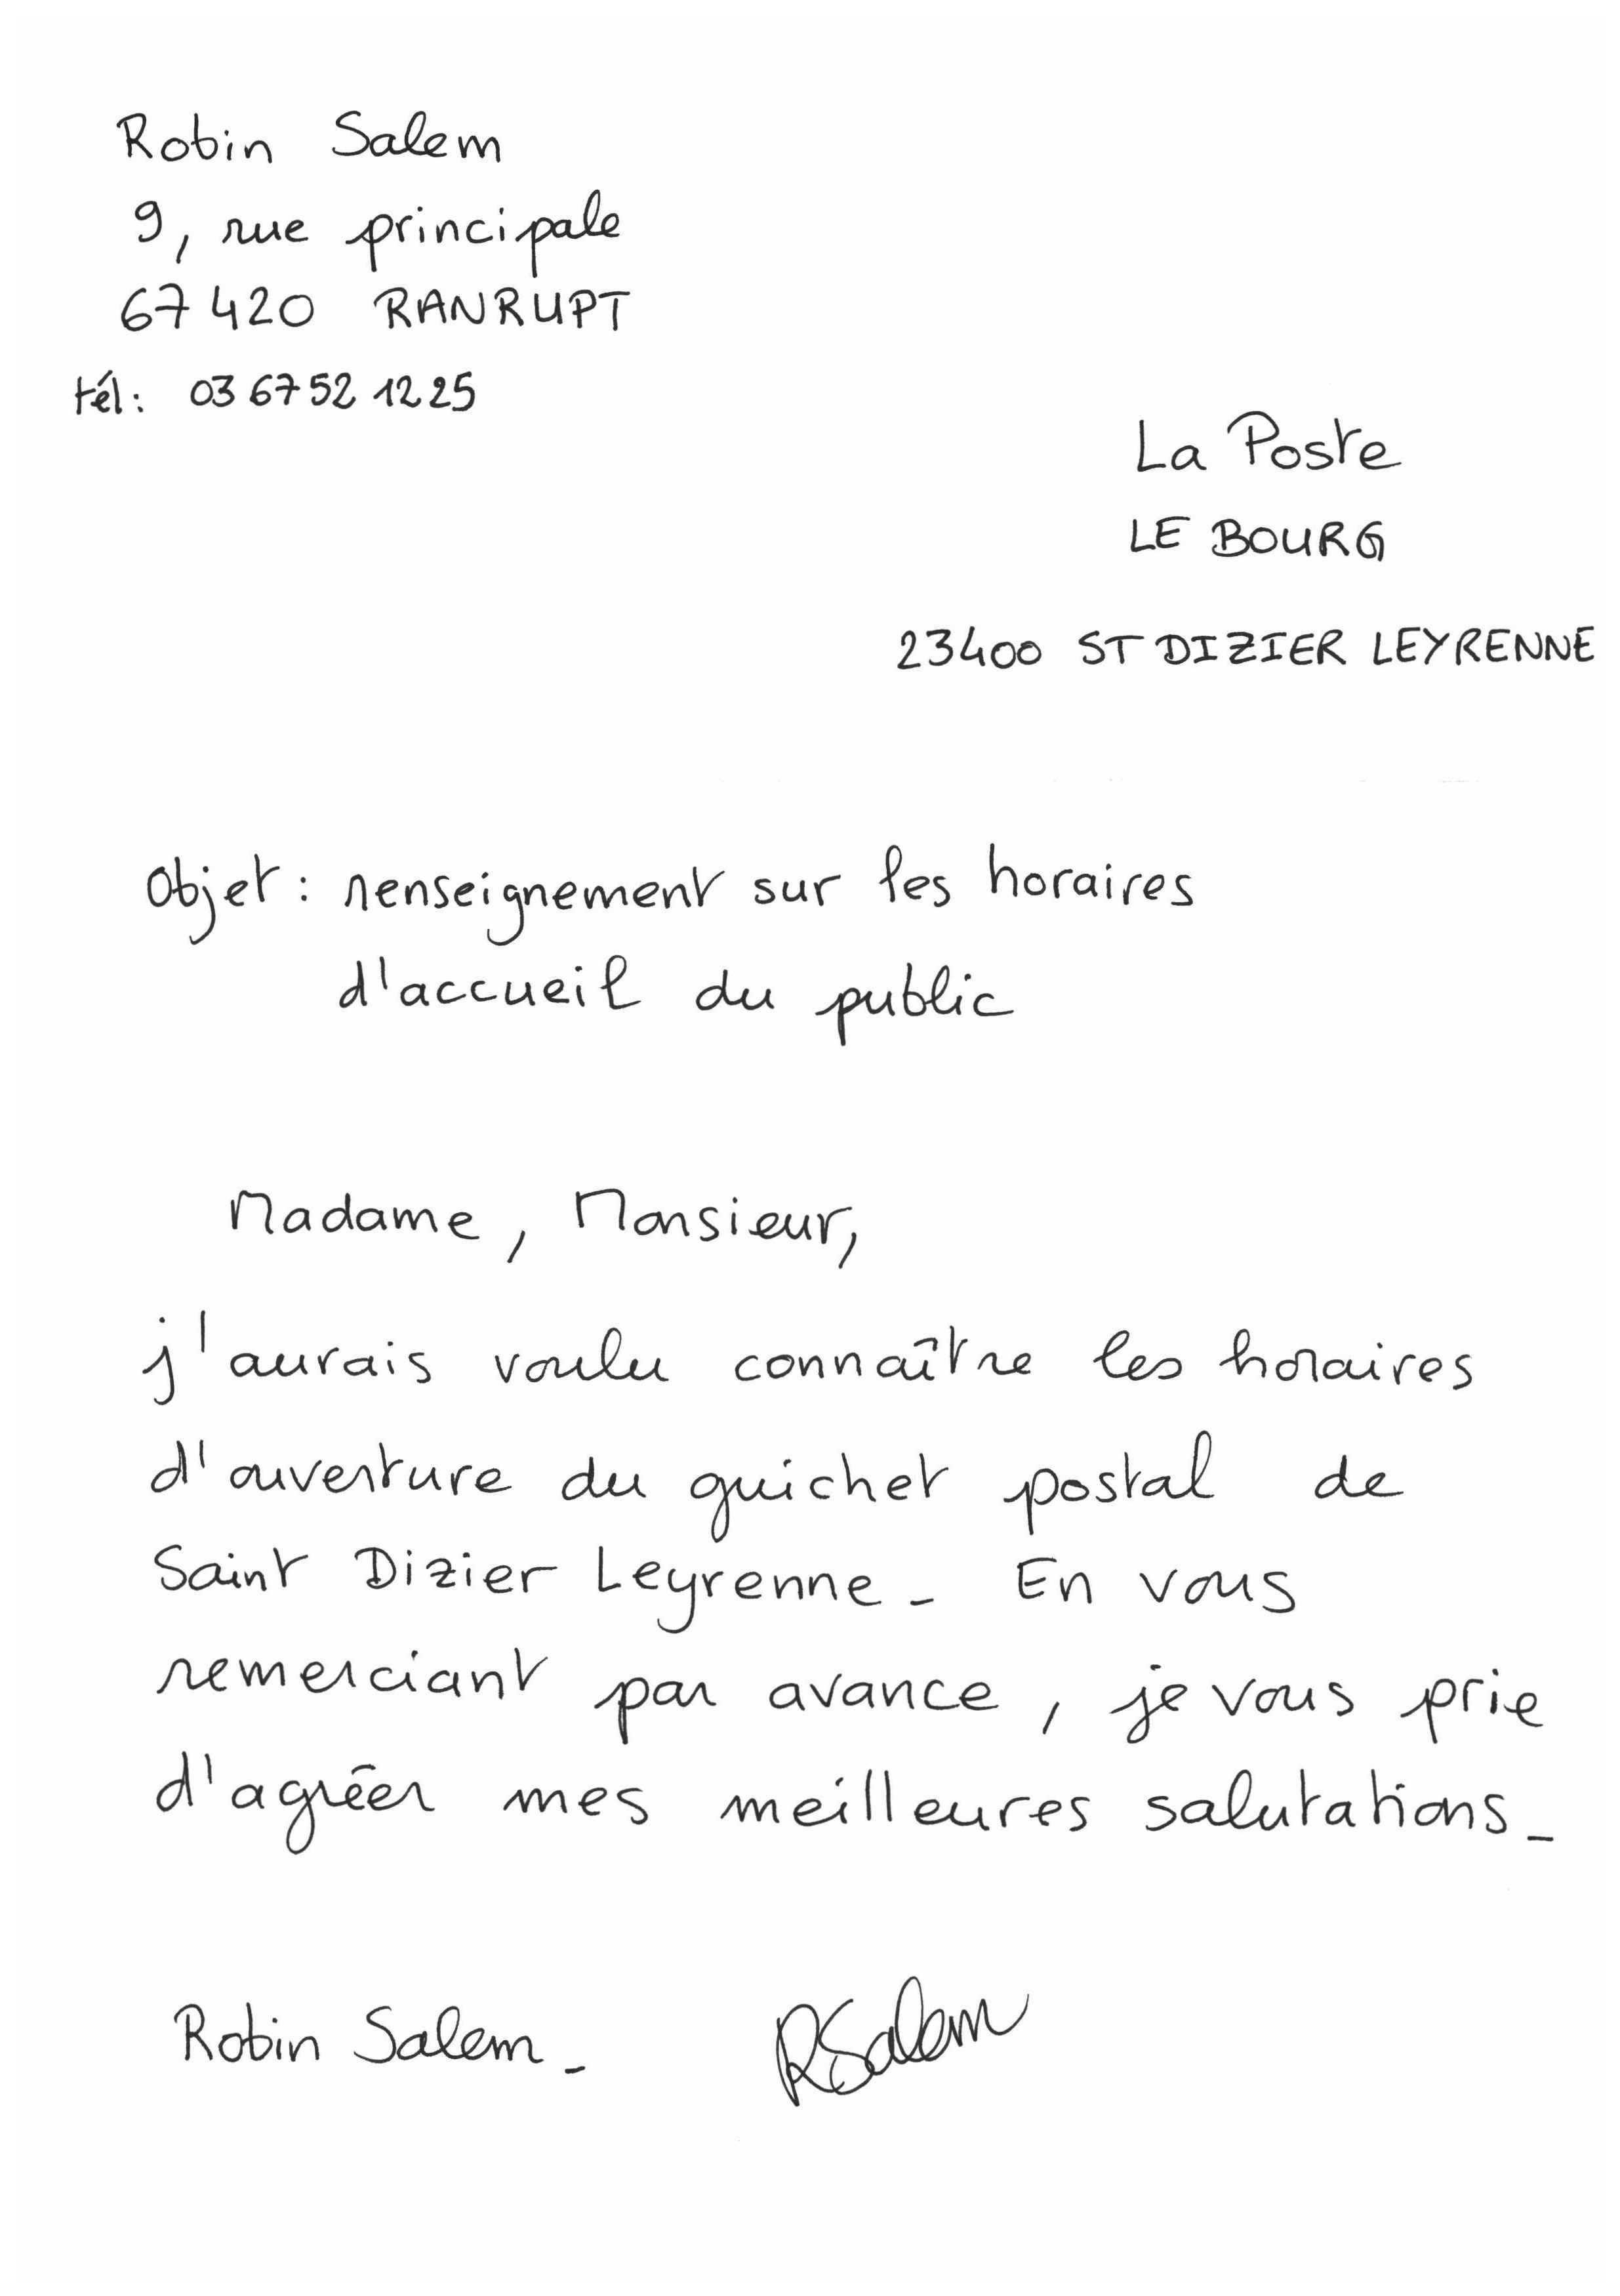 Robin Salem
9, rue principale
67420 RANRUPT
tél: 03 67 52 12 25
La Poste
LE BOURG
23400 ST DIZIER LEYRENNE
Objet : renseignement sur les horaires
d'accueil du public
Madame, Monsieur,
j'aurais voulu connaître les horaires
d'ouverture du guichet postal de
Saint Dizier Leyrenne_ En vous
remerciant par avance, je vous prie
d'agréer mes meilleures salutations_
Robin Salem_ RSalem